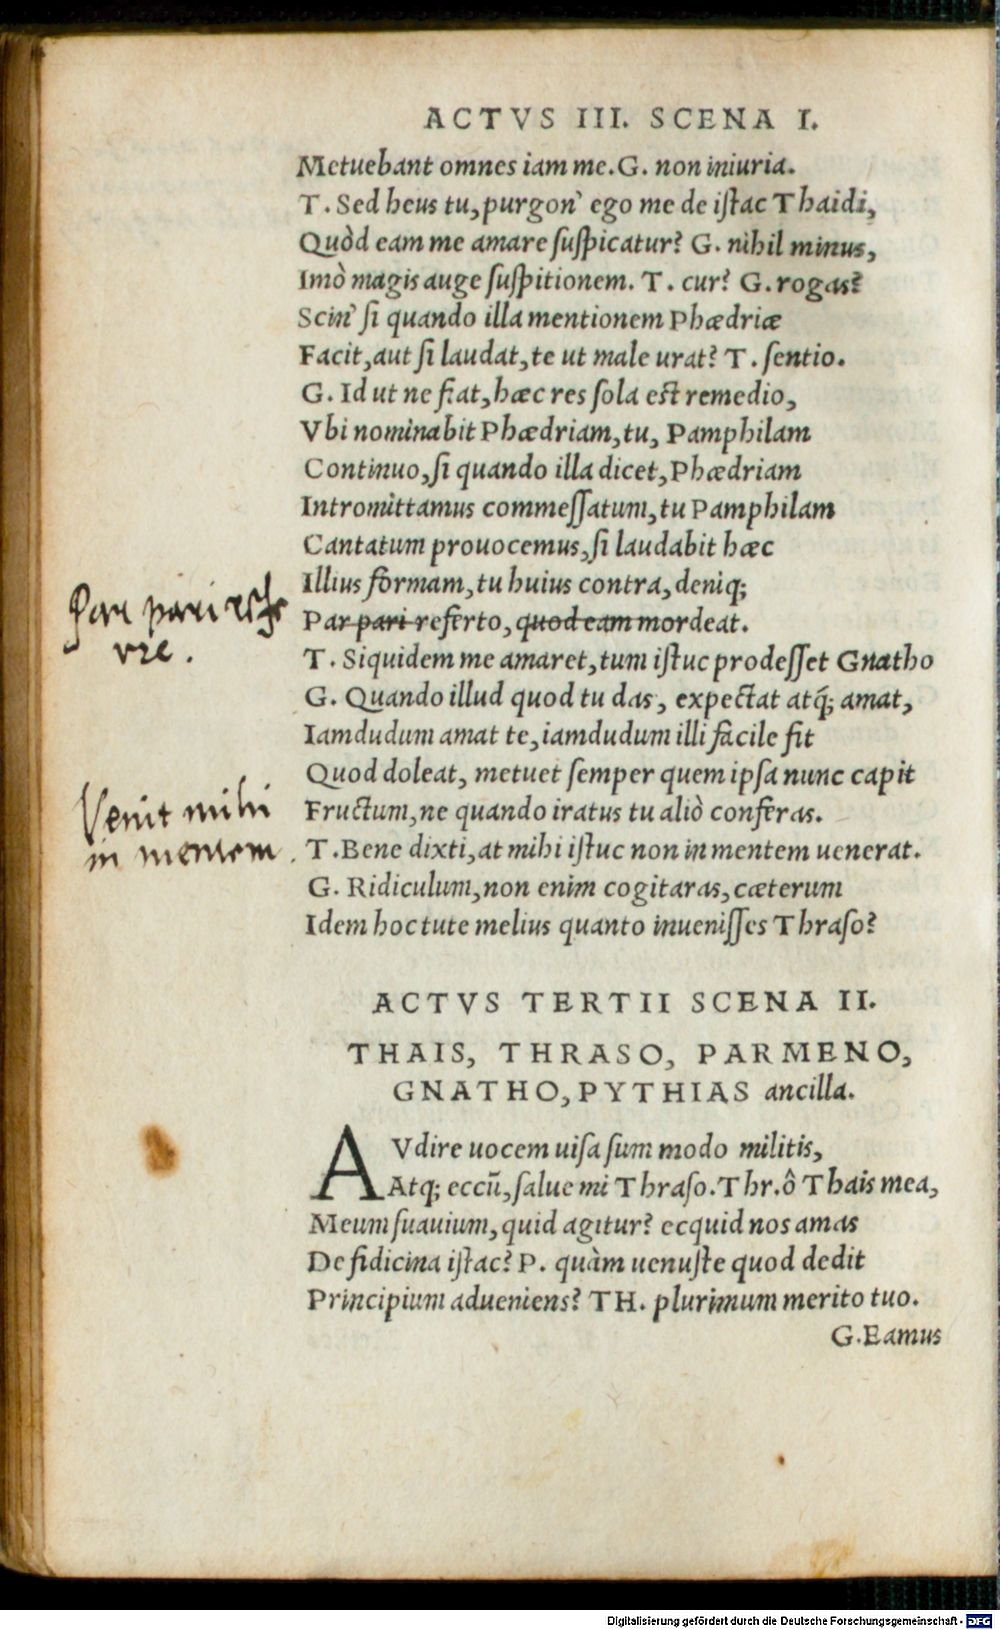 ACTVS III. SCENA I.
Metuebant omnes iam me. G. non iniuria.
T. Sed heus tu, purgon' ego me de istac Thaidi,
Quòd eam me amare suspicatur? G. nihil minus,
Imò magis auge suspitionem. T. cur? G. rogas?
Scin' si quando illa mentionem Phædriæ
Facit, aut si laudat, te ut male urat? T. sentio.
G. Id ut ne fiat, hæc res sola est remedio,
Vbi nominabit Phædriam, tu, Pamphilam
Continuo, si quando illa dicet, Phædriam
Intromittamus commessatum, tu Pamphilam
Cantatum prouocemus, si laudabit hæc
Illius formam, tu huius contra, deniq;
Par pari referto, quod eam mordeat.
Par pari
rre.
T. Siquidem me amaret, tum istuc prodesset Gnatho
G. Quando illud quod tu das, expectat atq́; amat,
Iamdudum amat te, iamdudum illi facile fit
Quod doleat, metuet semper quem ipsa nunc capit
Fructum, ne quando iratus tu aliò conferas.
Venit mihi
in mentem.
T. Bene dixti, at mihi istuc non in mentem uenerat.
G. Ridiculum, non enim cogitaras, cæterum
Idem hoc tute melius quanto inuenisses Thraso?
ACTVS TERTII SCENA II.
THAIS, THRASO, PARMENO,
GNATHO, PYTHIAS ancilla.
AVdire uocem uisa sum modo militis,
Atq; eccū, salue mi Thraso. Thr. ô Thais mea,
Meum suauium, quid agitur? ecquid nos amas
De fidicina istac? P. quàm uenuste quod dedit
Principium adueniens? TH. plurimum merito tuo.
G. Eamus
Digitalisierung gefördert durch die Deutsche Forschungsgemeinschaft - DFG